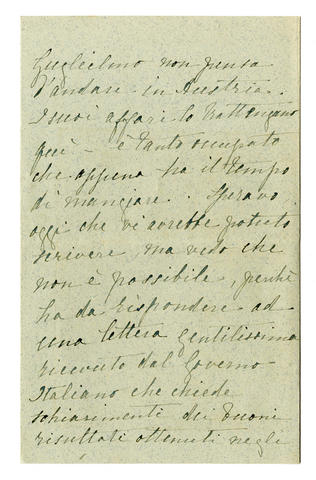 Guglielmo non pensa
d'andare in Austria.
I suoi affari lo trattengano
quì - è tanto occupato
che appena ha il tempo
di mangiare. Speravo,
oggi che vi avrebbe potuto
scrivere, ma vedo che
non è possibile, perchè
ha da rispondere ad
una lettera gentilissima
ricevuto dal Governo
Italiano che chiede
schiarimenti dei buoni
risultati ottenuti negli